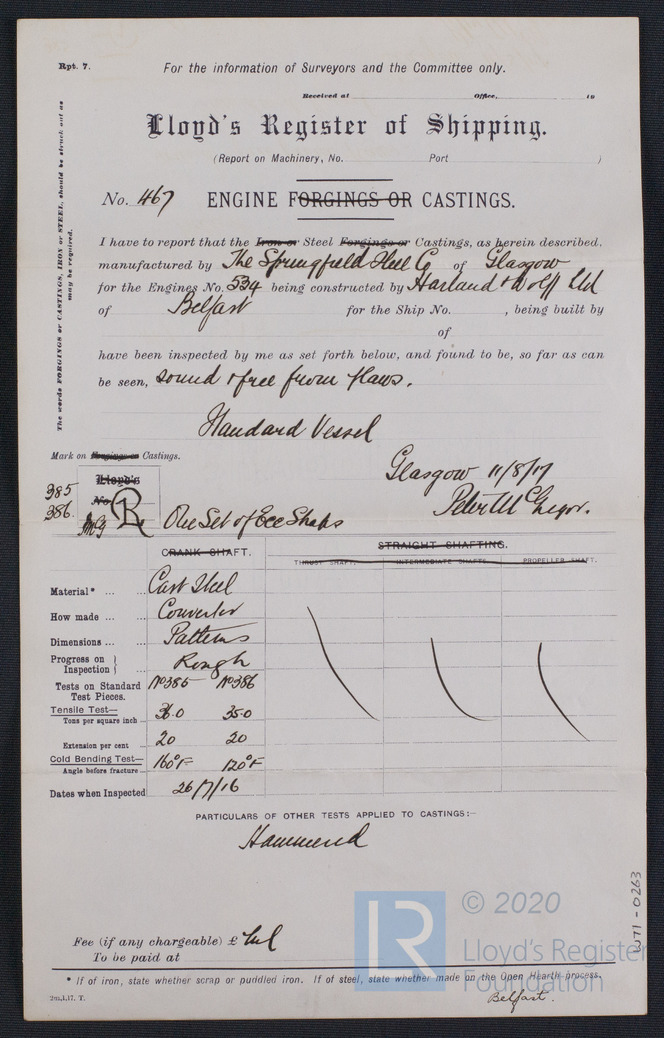 Rpt. 7.
For the information of Surveyors and the Committee only.
Received at Office, 19
Lloyd's Register of Shipping.
(Report on Machinery, No. Port )
No. 467 ENGINE FORGINGS OR CASTINGS.
The words FORGINGS or CASTINGS, IRON or STEEL, should be struck out as
may be required.
I have to report that the Iron or Steel Forgings or Castings, as herein described,
manufactured by The Springfield Steel Co of Glasgow
for the Engines No. 534 being constructed by Harland & Wolff Ltd
of Belfast for the Ship No. , being built by
of
have been inspected by me as set forth below, and found to be, so far as can
be seen, sound & free from flaws.
Standard Vessel
Mark on Forgings or Castings.
Glasgow 11/8/17
Lloyd's
385
No.
386
McG R
Peter McGregor.
One Set of Ecc Straps
CRANK SHAFT.
STRAIGHT SHAFTING.
THRUST SHAFT. INTERMEDIATE SHAFTS. PROPELLER SHAFT.
Material* ... ... Cast Steel
How made ... ... Convertor
Dimensions ... ... Patterns
Progress on
Inspection Rough
Tests on Standard No 385 No 386
Test Pieces.
Tensile Test—
Tons per square inch 36.0 35.0
Extension per cent 20 20
Cold Bending Test— 160°F 120°F
Angle before fracture
Dates when Inspected 26/7/16
PARTICULARS OF OTHER TESTS APPLIED TO CASTINGS:—
Hammered
Fee (if any chargeable) £ Nil
To be paid at
* If of iron, state whether scrap or puddled iron. If of steel, state whether made on the Open Hearth process.
2m,1,17. T.
Belfast.
WT1-0263
LR
© 2020
Lloyd's Register
Foundation